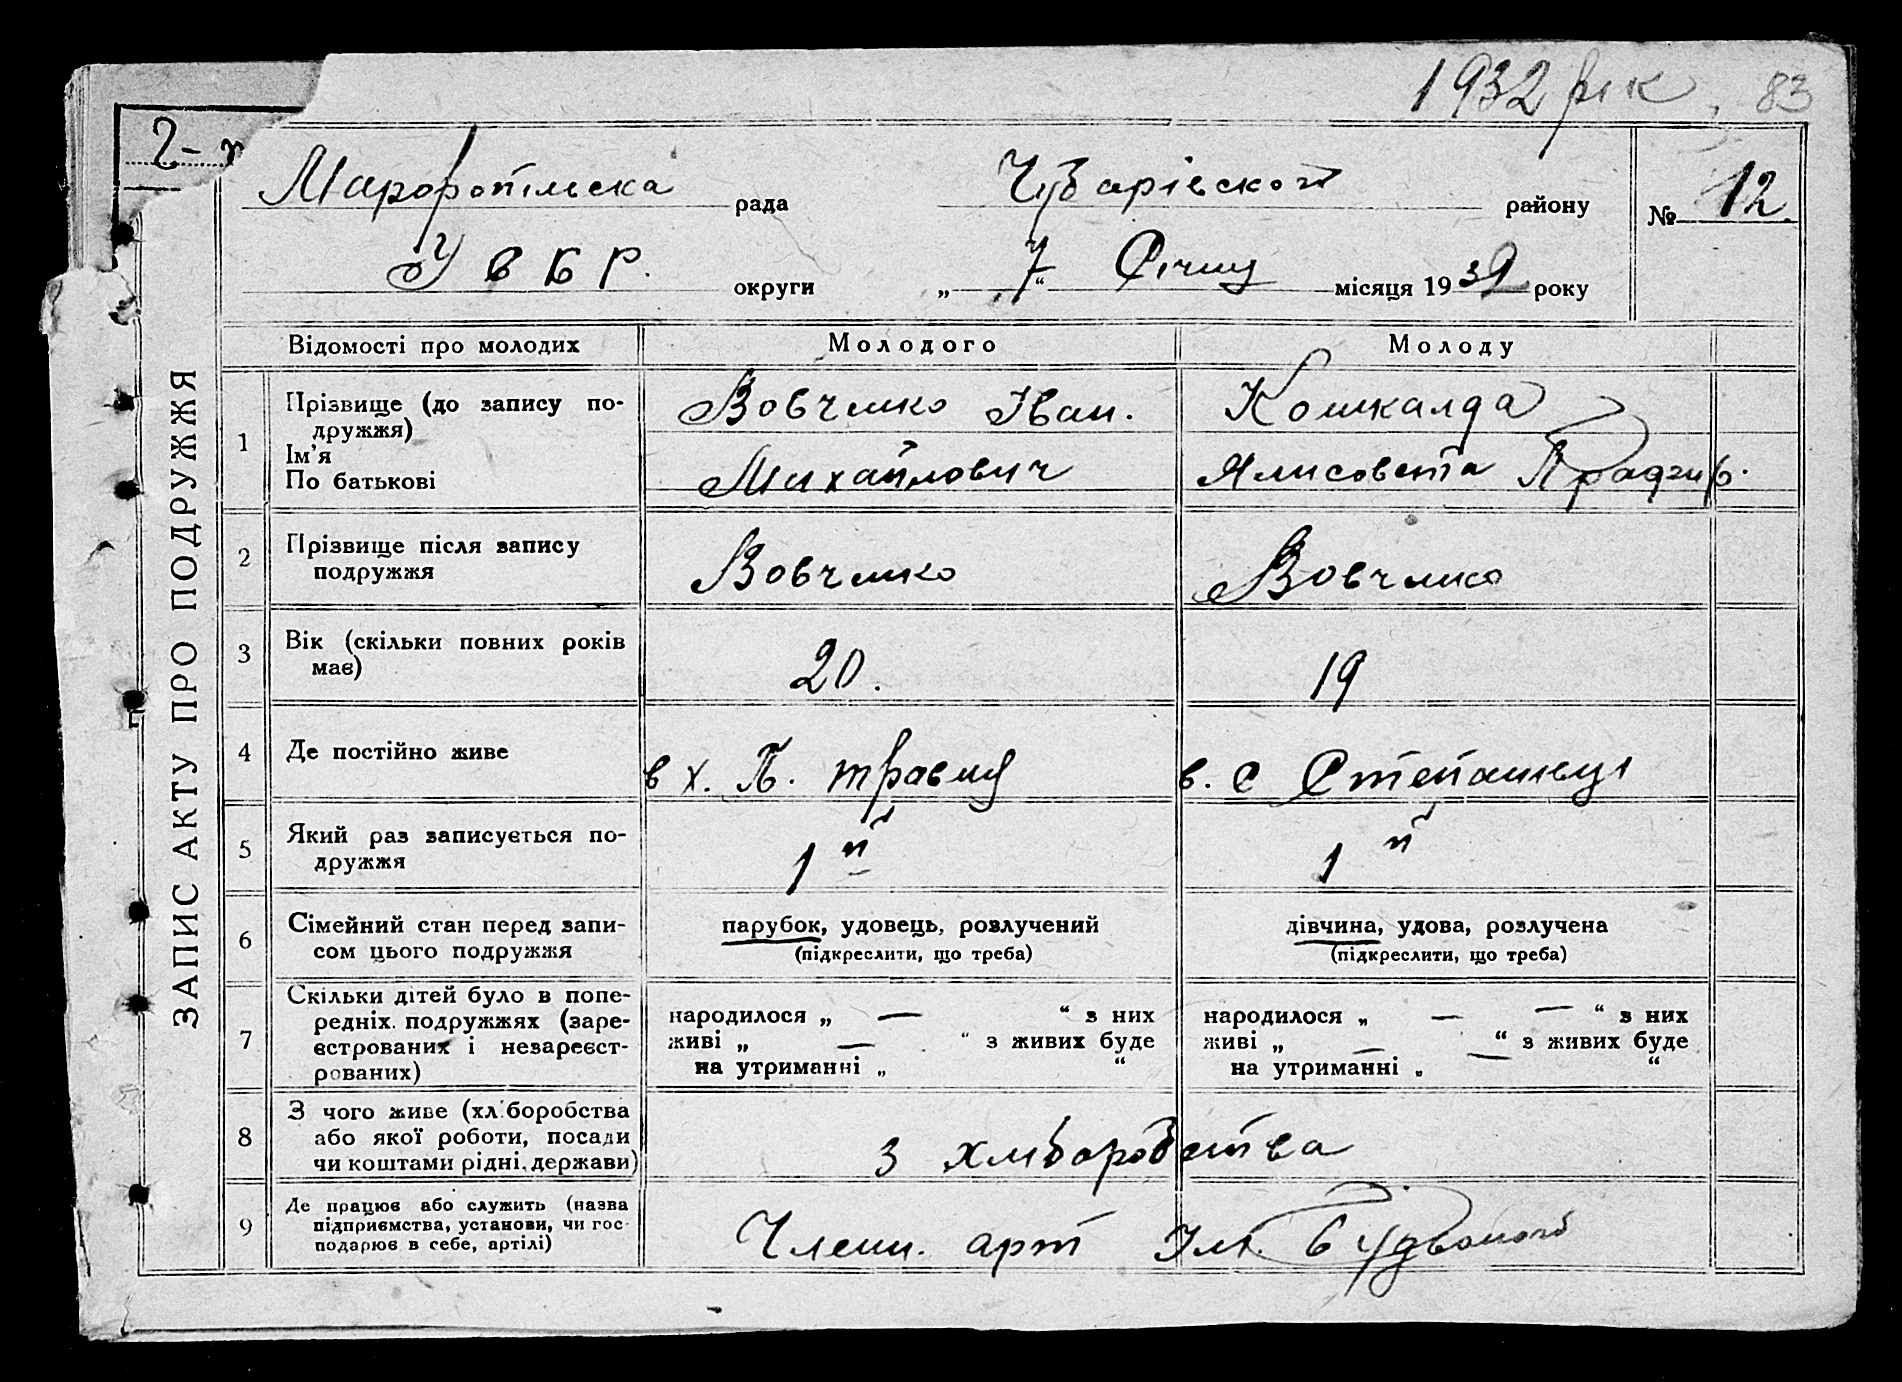 1932 рік 83
2-
Чубарівского
рада району № 12
У В Б Р.
округи „ 7 “ Січня місяця 1932 року
ЗАПИС АКТУ ПРО ПОДРУЖЖЯ
Відомості про молодих Молодого Молоду
1 Прізвище (до запису по-
дружжя)
Ім'я
По батькові
Вовченко Іван. Кошкалда
Михайлович Ялисовета
2 Прізвище після запису
подружжя
Вовченко Вовченко
3 Вік (скільки повних років
має)
20. 19
4 Де постійно живе в х. П. травня в. с
5 Який раз записується по-
дружжя
1й 1й
6 Сімейний стан перед запи-
сом цього подружжя
парубок, удовець, розлучений дівчина, удова, розлучена
(підкреслити, що треба) (підкреслити, що треба)
7 Скільки дітей було в попе-
редніх. подружжях (заре-
єстрованих і незареєст-
рованих)
народилося „ — “ з них народилося „ — — “ з них
живі „ — “ з живих буде живі „ — “ з живих буде
на утриманні „ “ на утриманні „ — “
8 З чого живе (хліборобства
або якої роботи, посади
чи коштами рідні, держави)
з хліборобства
9 Де працює або служить (назва
підприємства, установи, чи гос-
подарює в себе, артілі)
Члени. арт Ім.